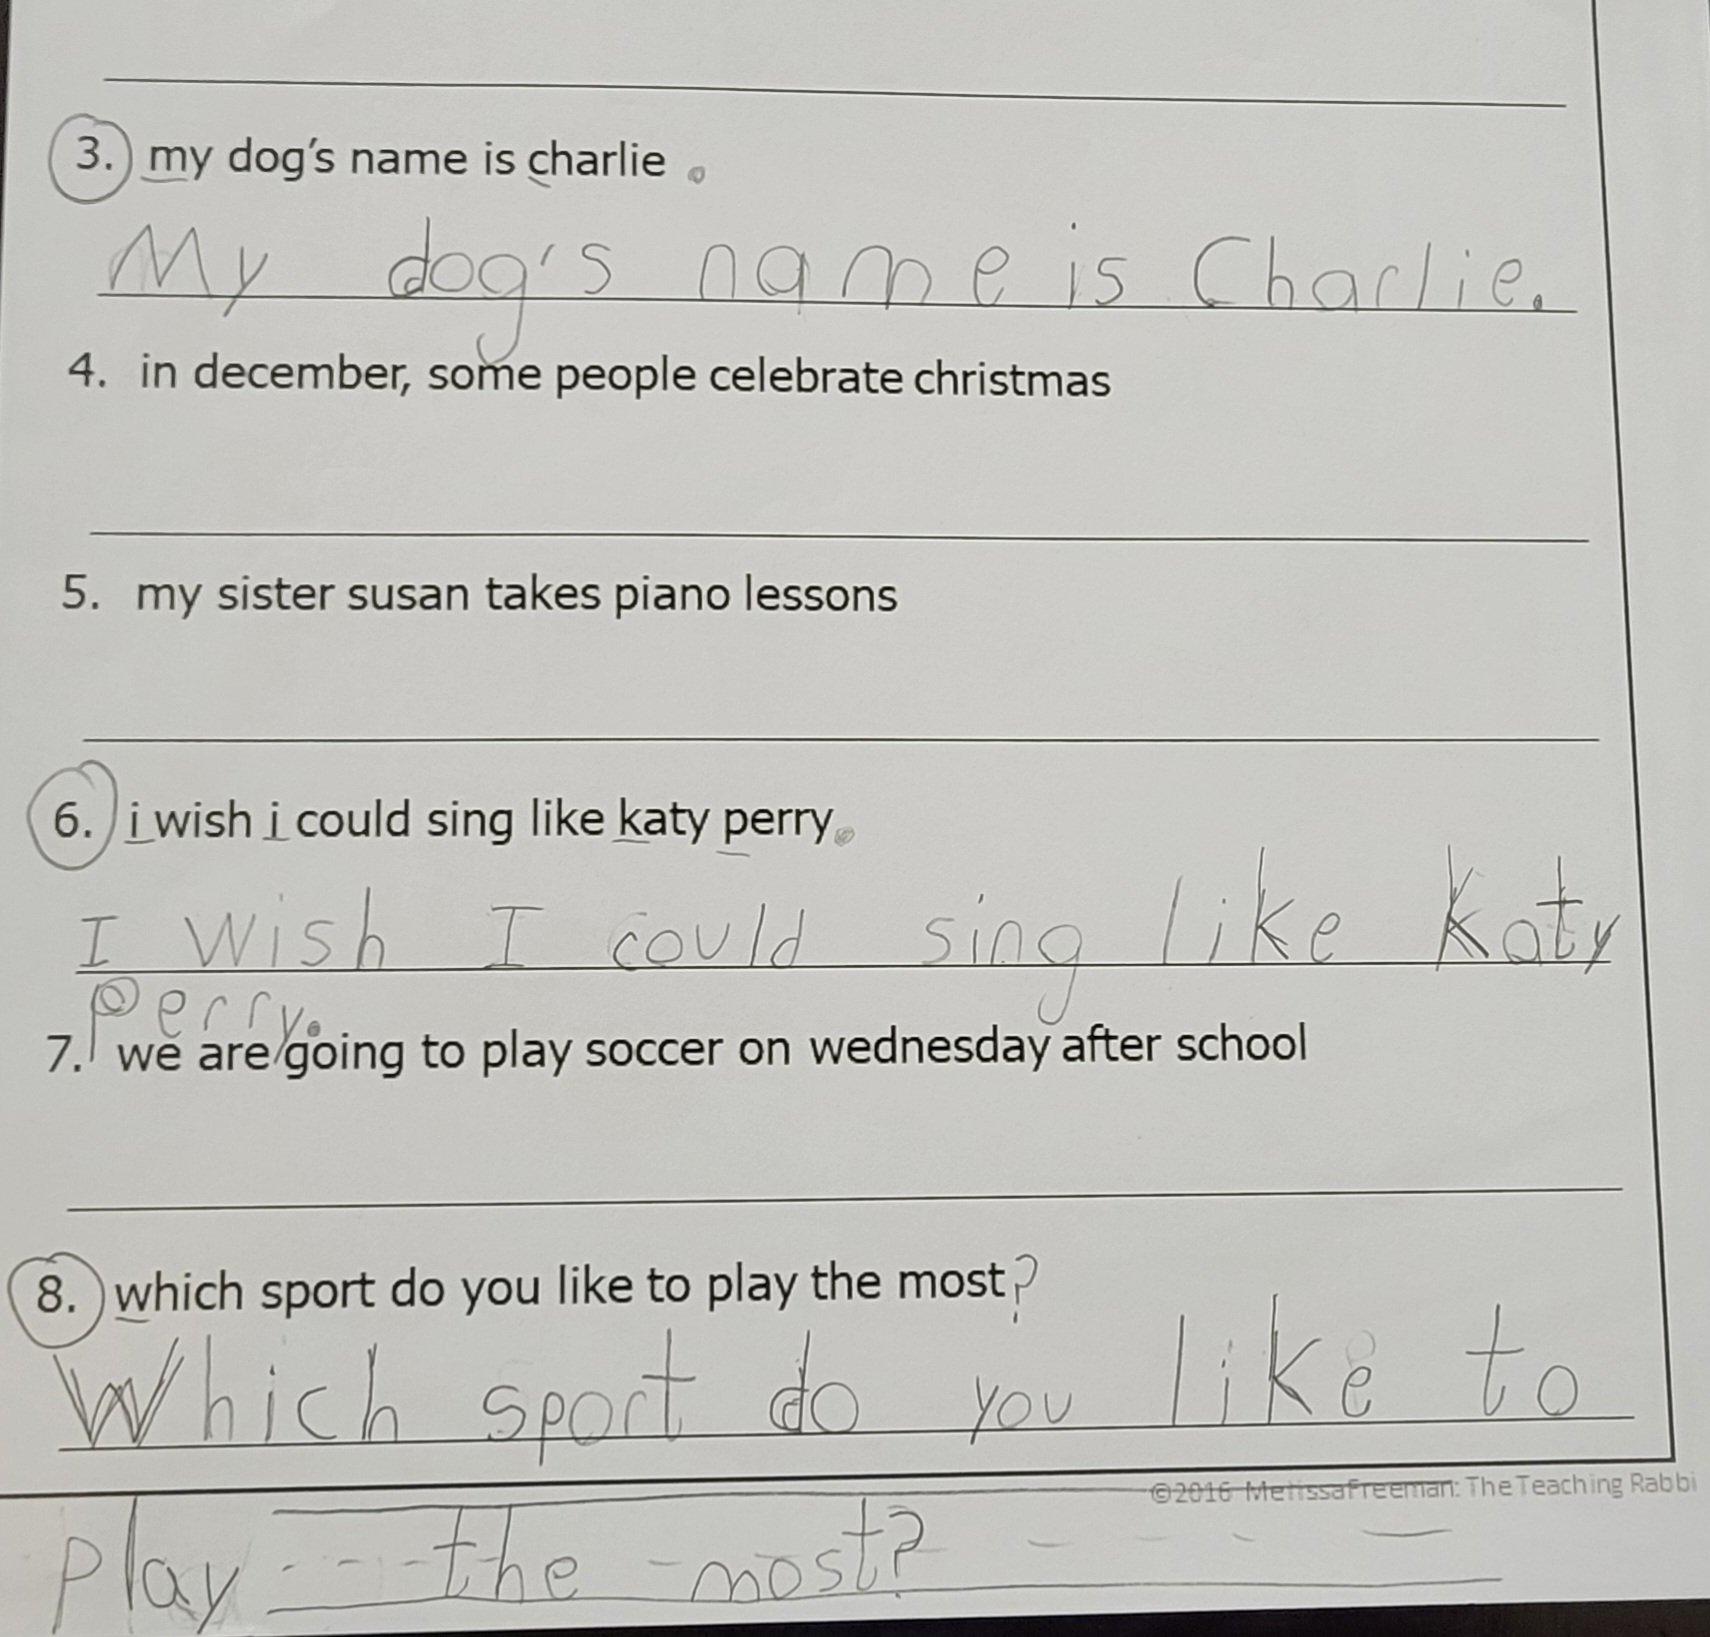 3. my dog's name is charlie .
My dog's name is Charlie.
4. in december, some people celebrate christmas
5. my sister susan takes piano lessons
6. i wish i could sing like katy perry.
I wish I could sing like Katy
Perry.
7. we are going to play soccer on wednesday after school
8. which sport do you like to play the most?
Which sport do you like to
©2016 MelissaFreeman: The Teaching Rabbi
play the most?